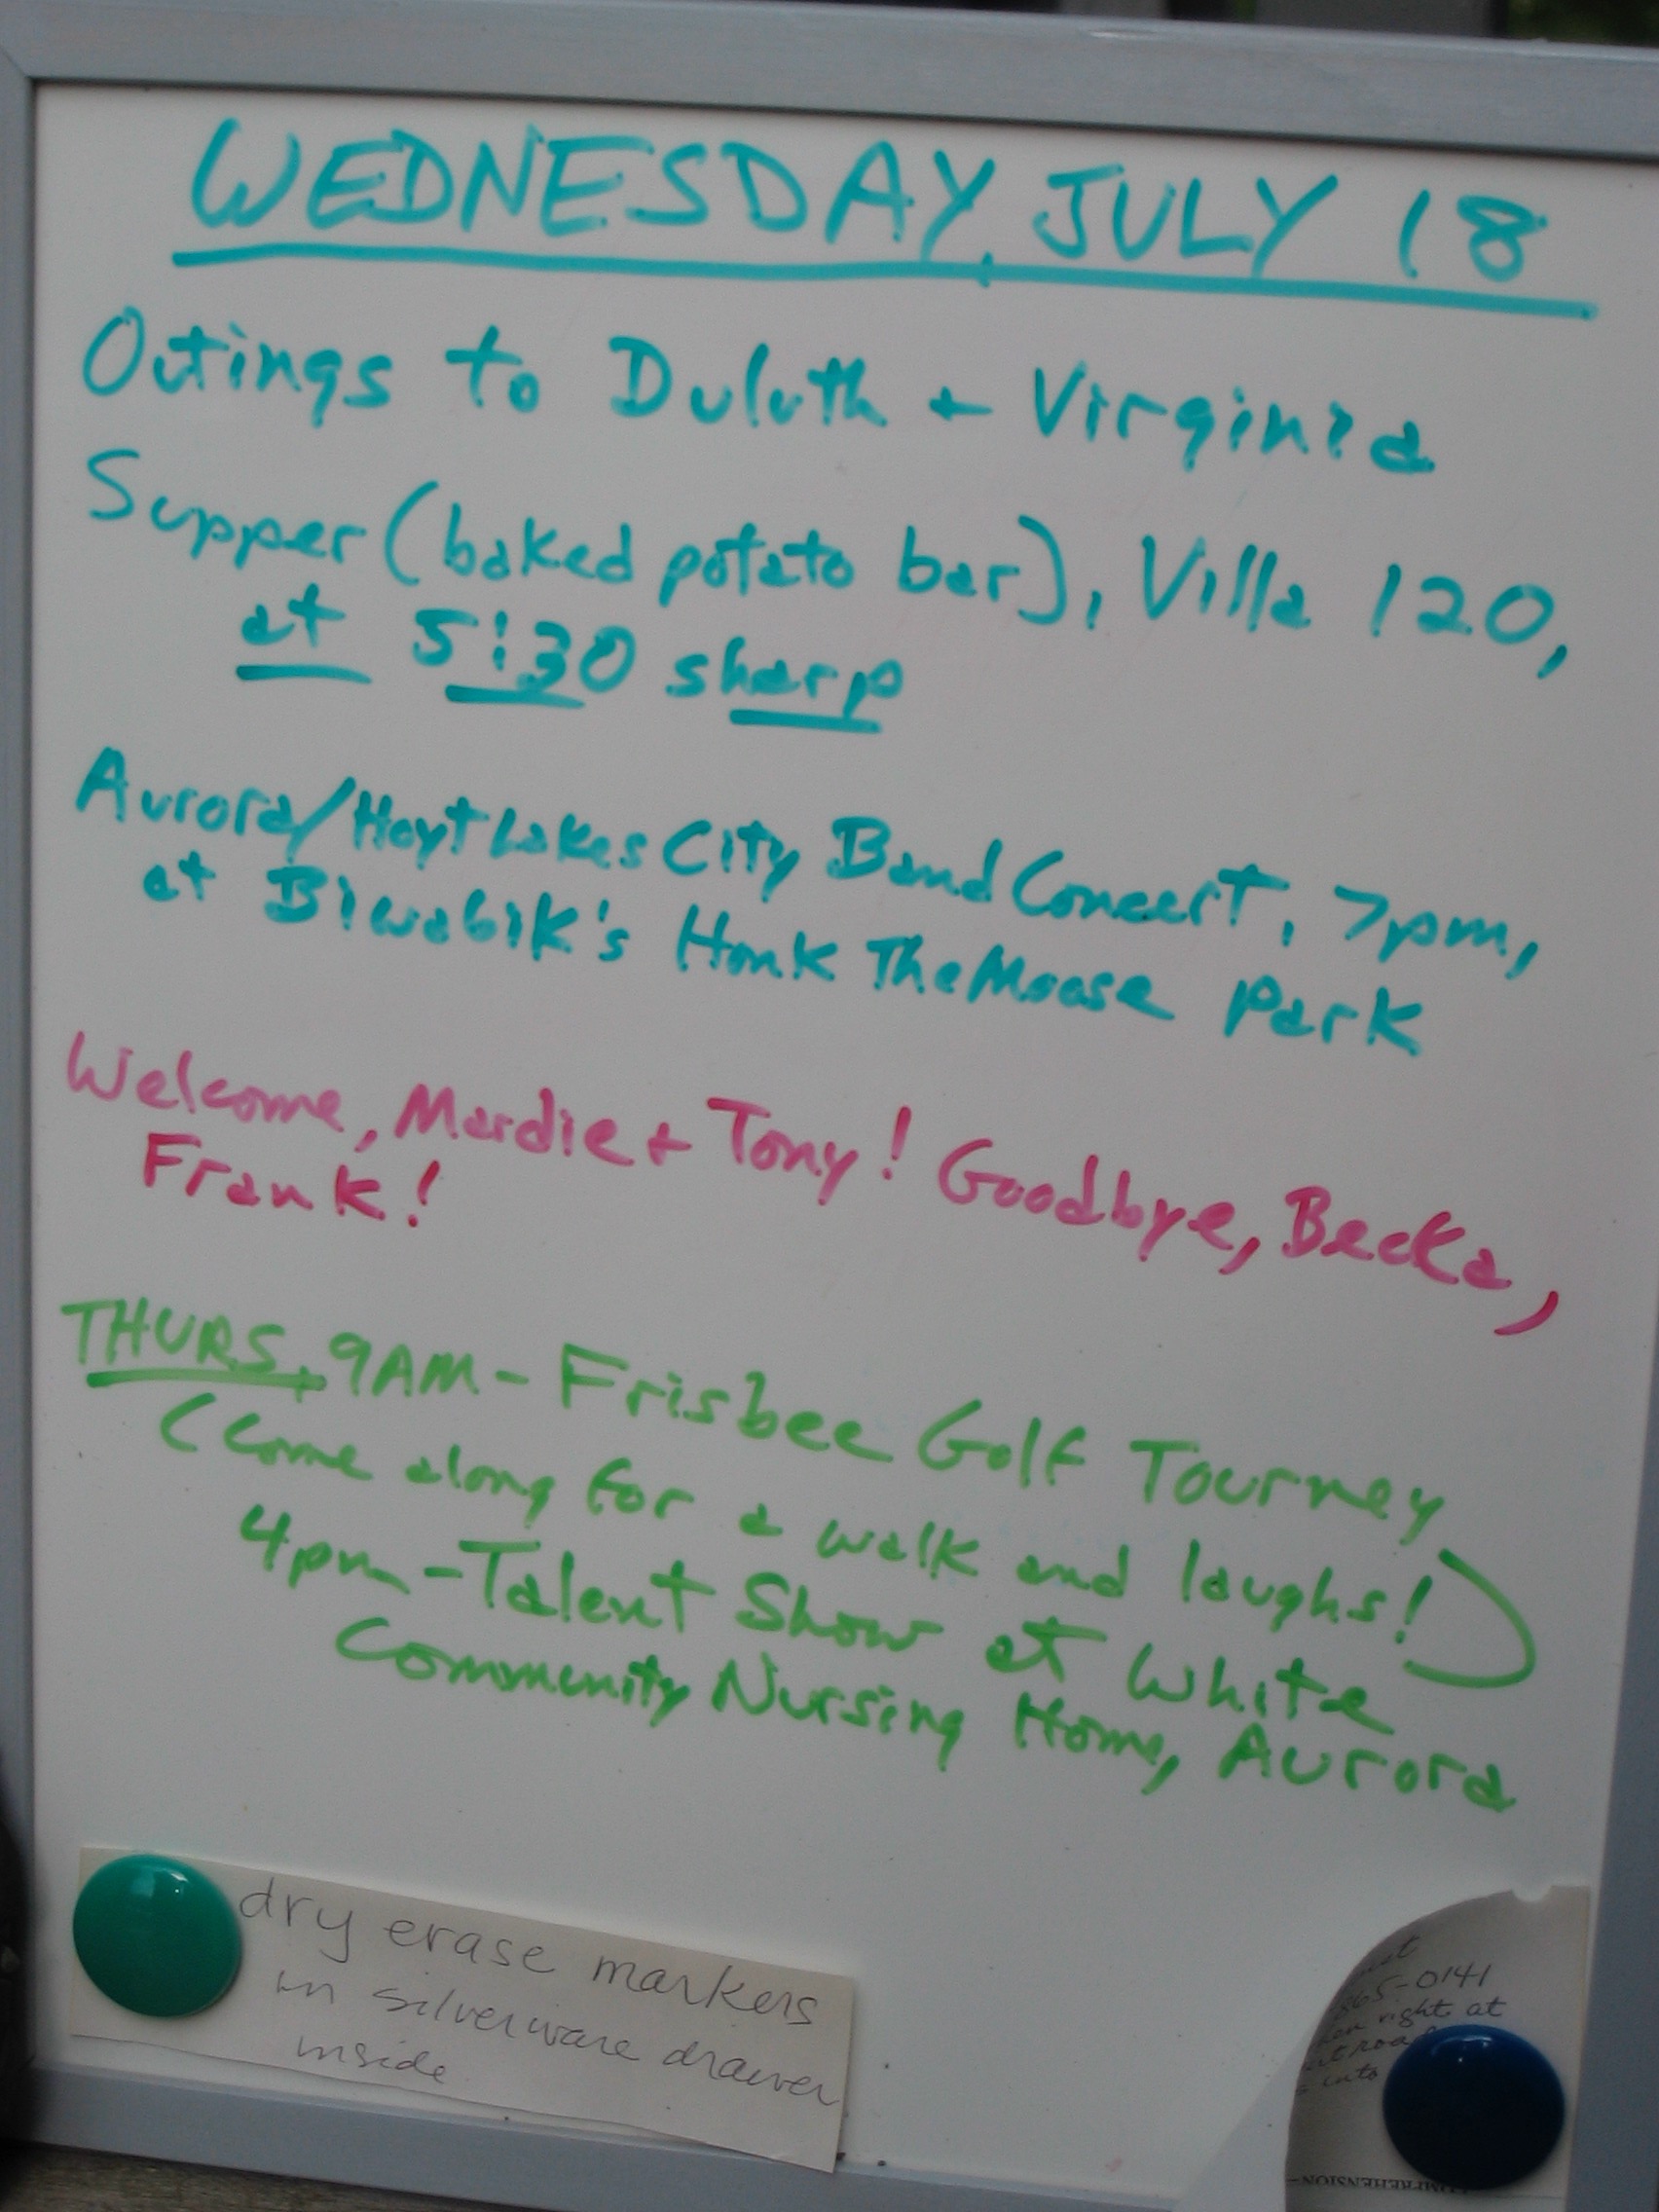 WEDNESDAY, JULY 18
Outings to Duluth + Virginia
Supper (baked potato bar), Villa 120,
at 5:30 sharp
Aurora/Hoyt Lakes City Band Concert, 7pm,
at Biwabik's Honk The Moose Park
Welcome, Mardie + Tony! Goodbye, Becka,
Frank!
THURS, 9AM - Frisbee Golf Tourney
(Come along for a walk and laughs!)
4pm - Talent Show at White
Community Nursing Home, Aurora
dry erase markers
in silverware drawer
inside
65-0141
right at
into